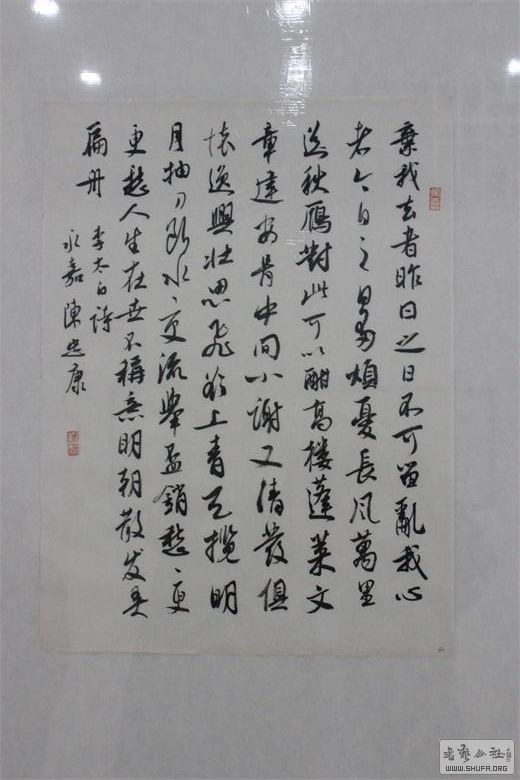 棄我去者昨日之日不可留亂我心
者今日之日多煩憂長風萬里
送秋鴈對此可以酣高樓蓬萊文
章建安骨中間小謝又清發俱
懷逸興壯思飛欲上青天攬明
月抽刀斷水々更流舉盃銷愁々更
更愁人生在世不稱意明朝散发弄
扁舟 李太白詩
永嘉陳忠康
書藝公社
WWW.SHUFA.ORG